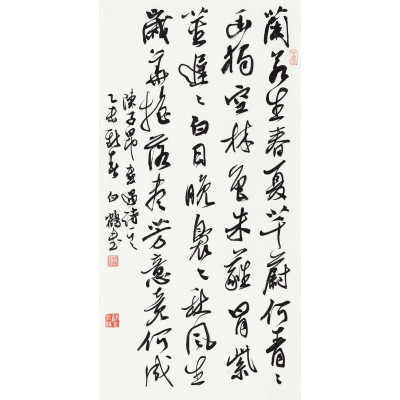 蘭若生春夏芊蔚何青〻
幽獨空林色朱蕤冒紫
莖遲〻白日晚裊〻秋風生
歲華搖落盡芳意竟何成
陳子昂感遇詩
白鶴書